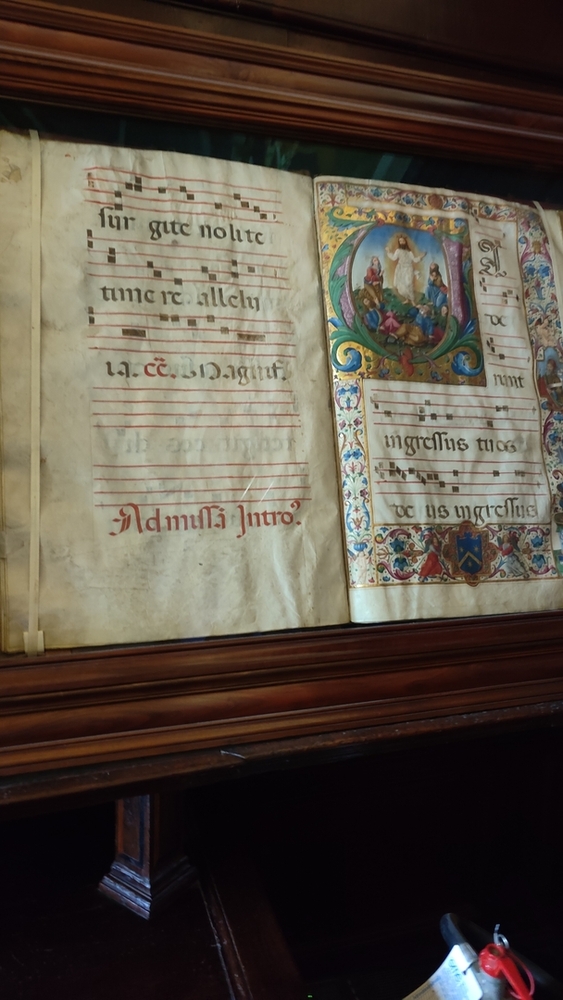 sur gite nolite
time re. allelu
ia. cē. Magnif.
Ad missā Intro?
de
runt
ingressus tuos
de us ingressus